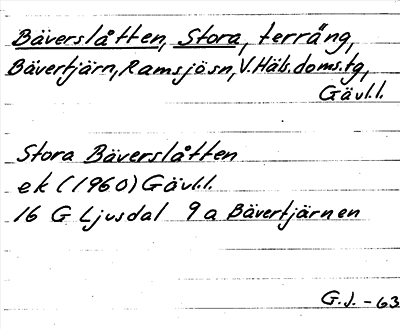 Bäverslåtten, Stora, terräng,
Bävertjärn, Ramsjösn, V. Häls. doms. tg,
Gävl.l.
Stora Bäverslåtten
ek (1960) Gävl.l.
16 G Ljusdal 9a Bävertjärnen
G.J. - 63